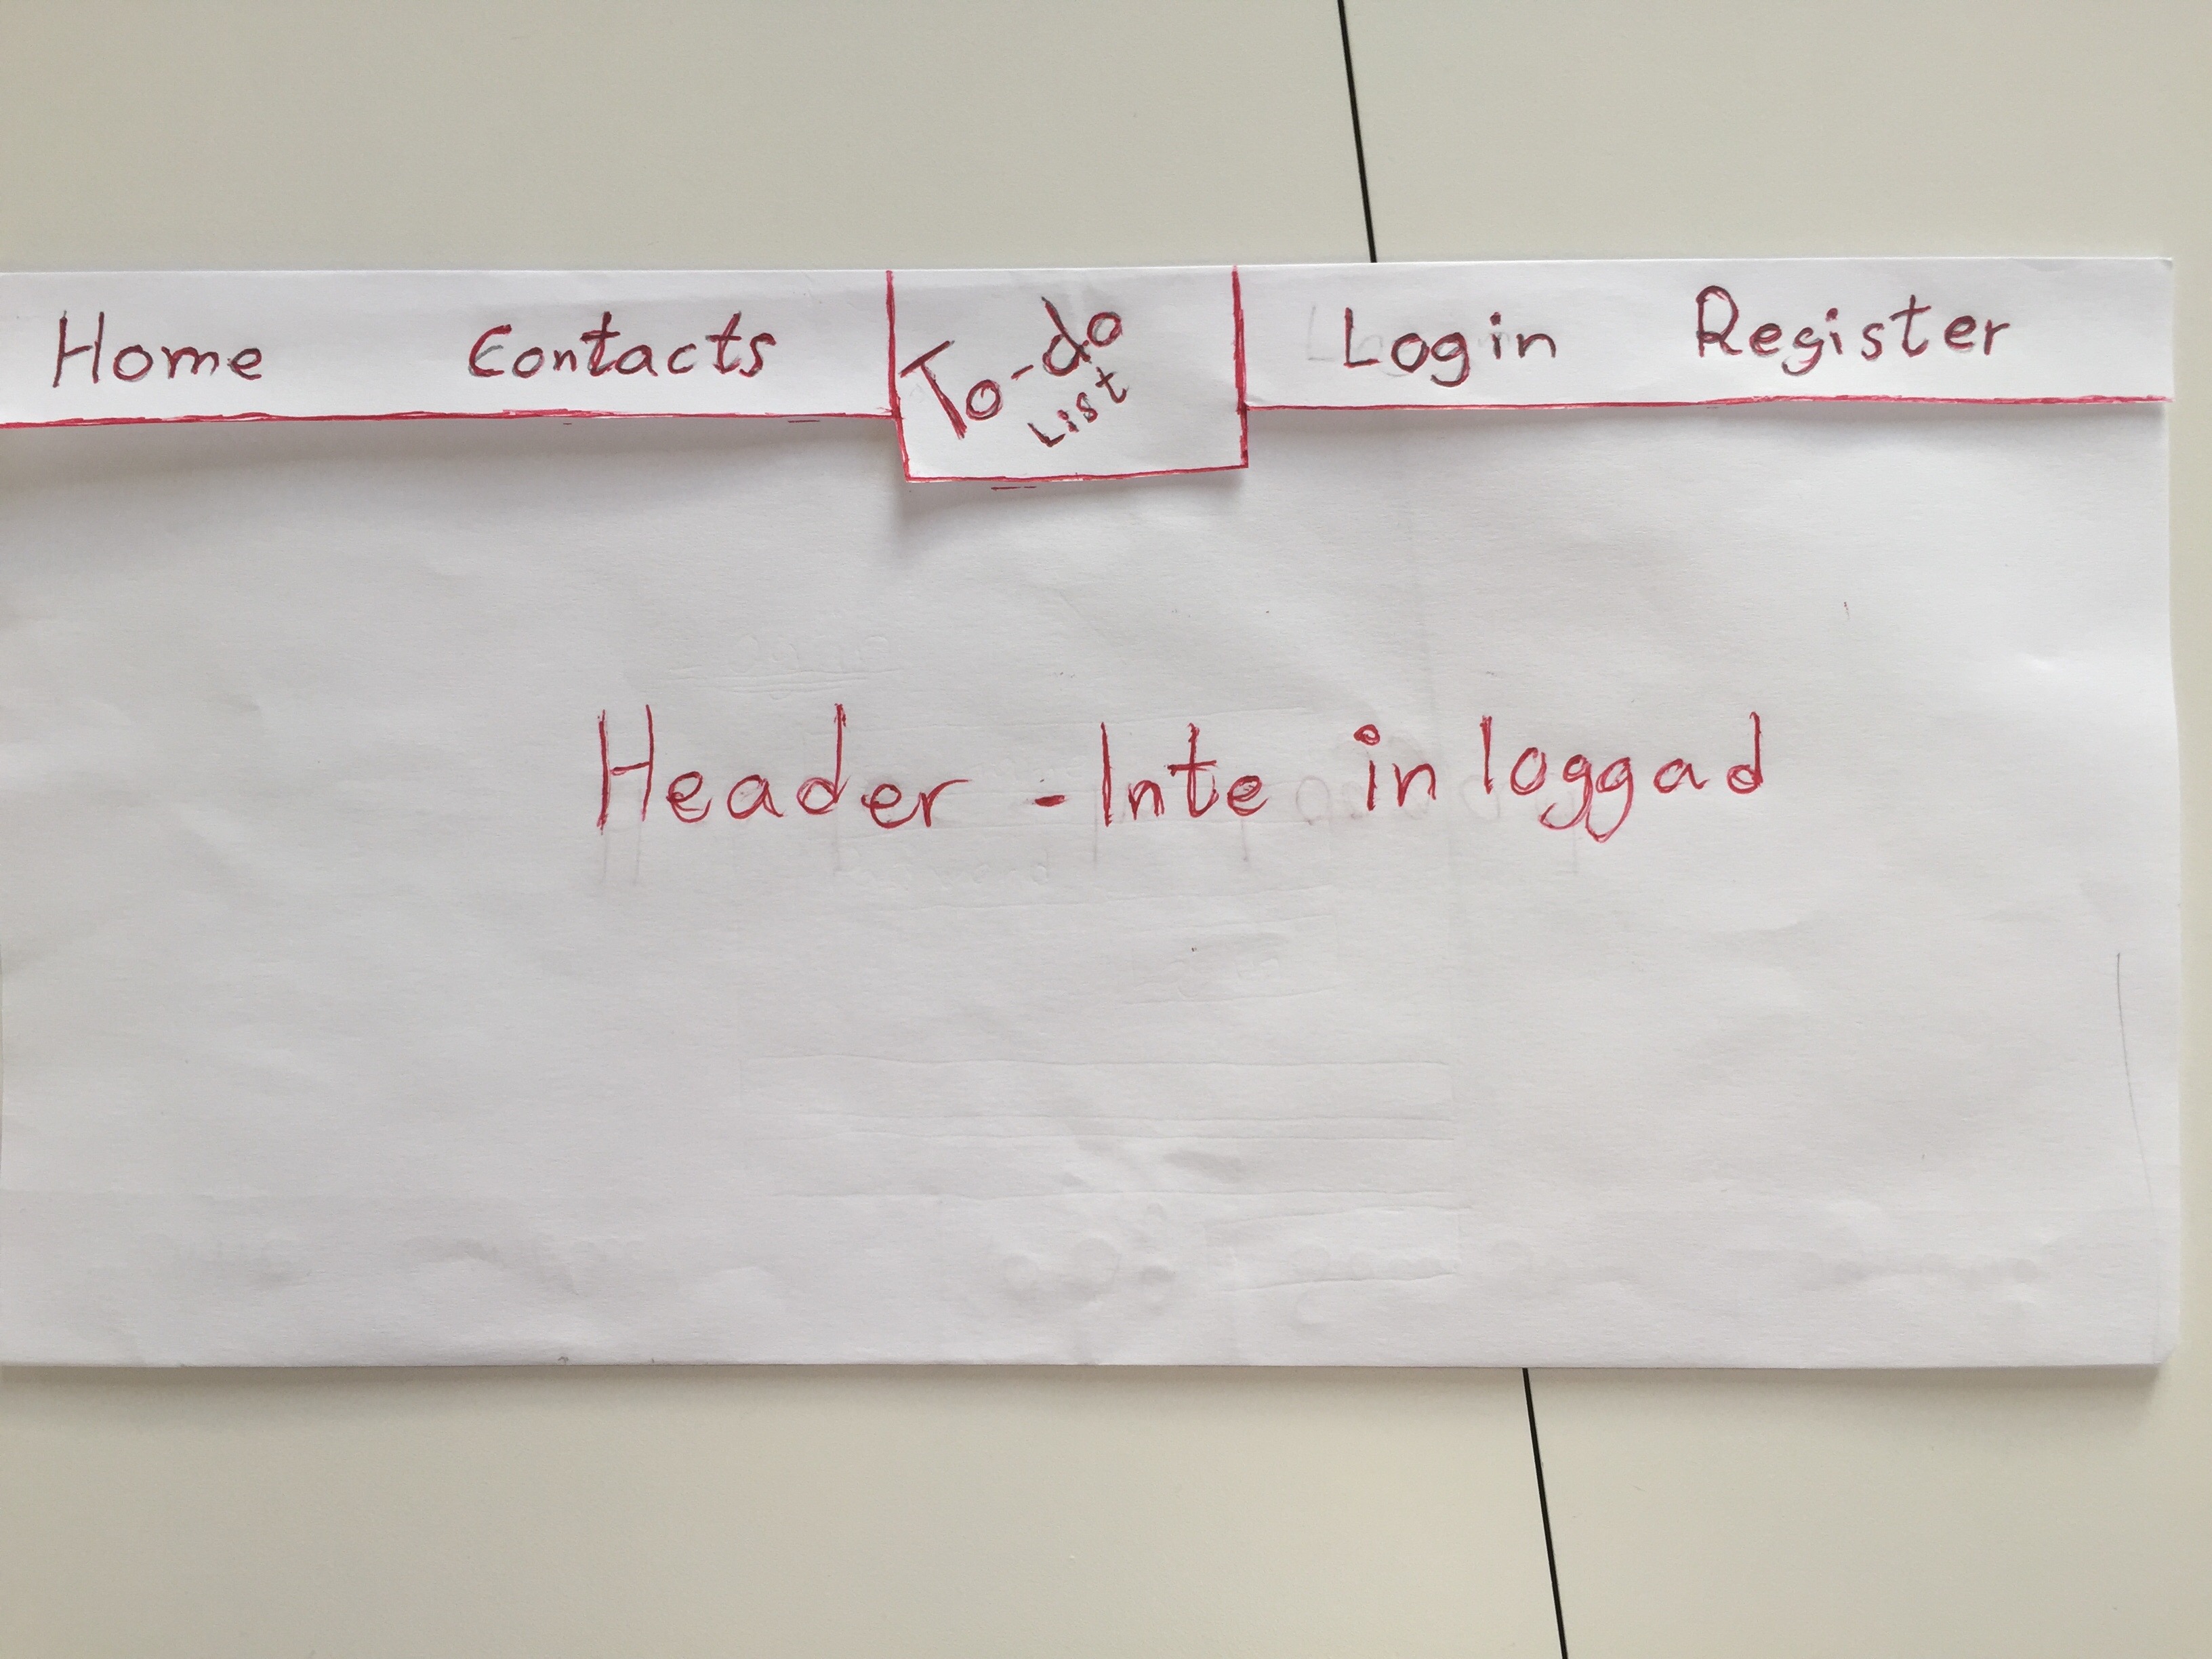 Home Contacts To-do List Login Register
Header - Inte inloggad